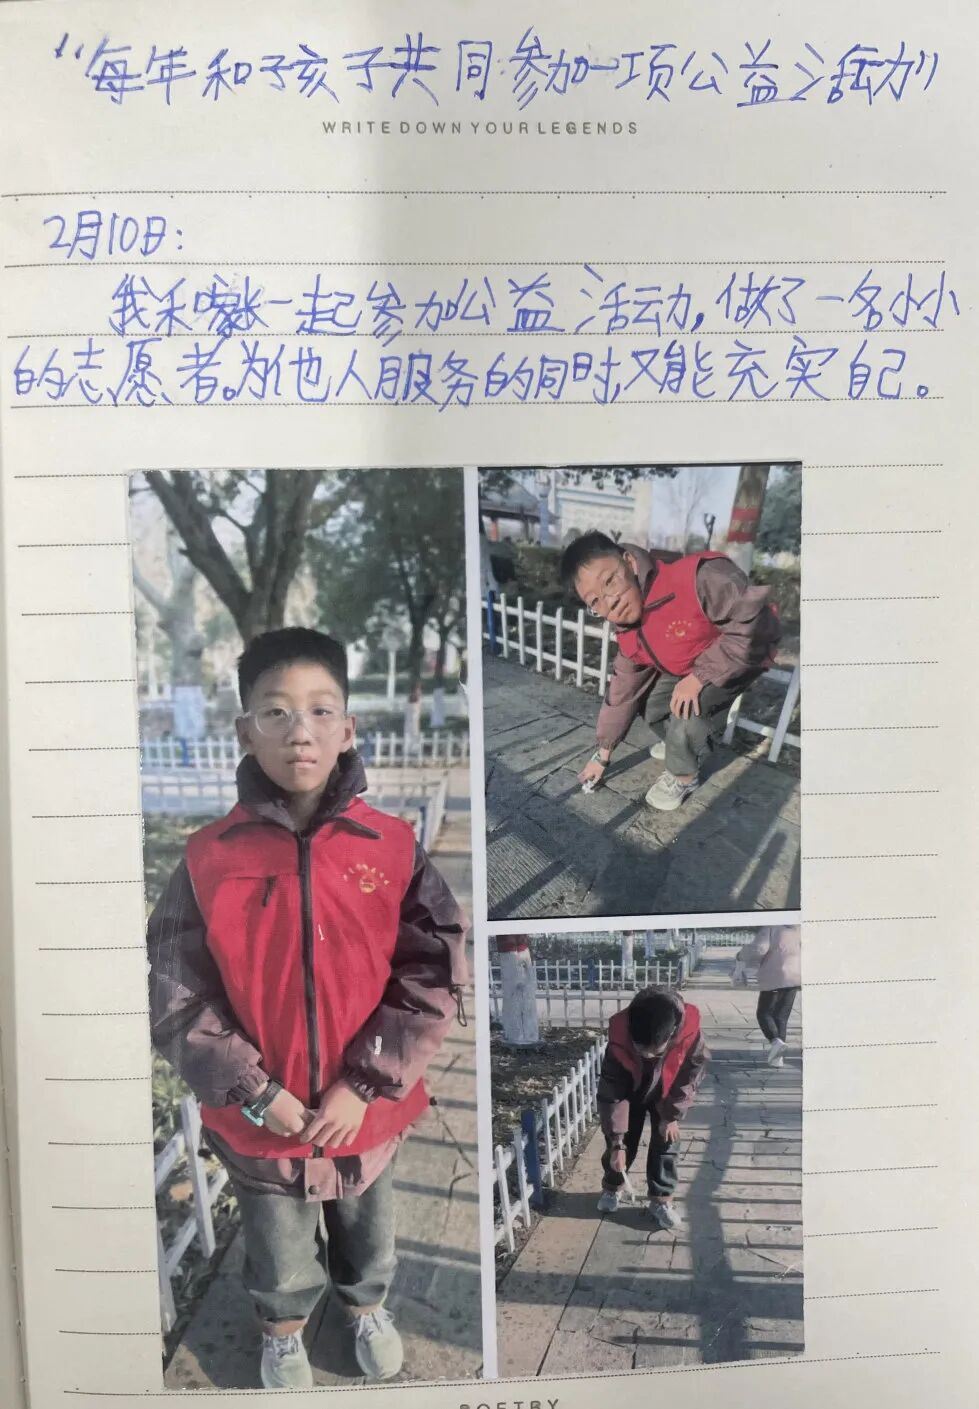 “每年和孩子共同参加一项公益活动”
WRITE DOWN YOUR LEGENDS
2月10日:
我和家长一起参加公益活动,做了一名小小
的志愿者。为他人服务的同时,又能充实自己。
POETRY